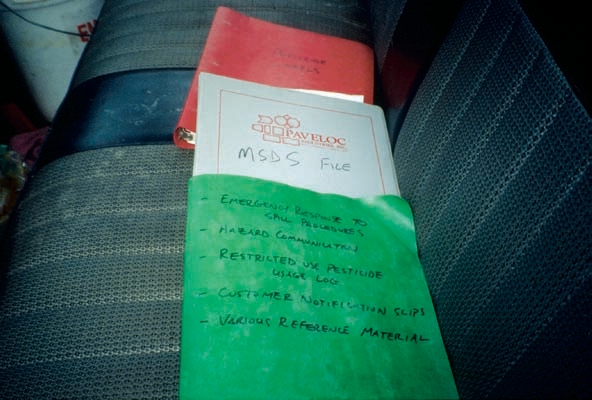 PESTICIDE
LABELS
PAVELOC
INDUSTRIES, INC.
MSDS FILE
- EMERGENCY RESPONSE TO
SPILL PROCEDURES
- HAZARD COMMUNICATION
- RESTRICTED USE PESTICIDE
USAGE LOG
- CUSTOMER NOTIFICATION SLIPS
- VARIOUS REFERENCE MATERIAL